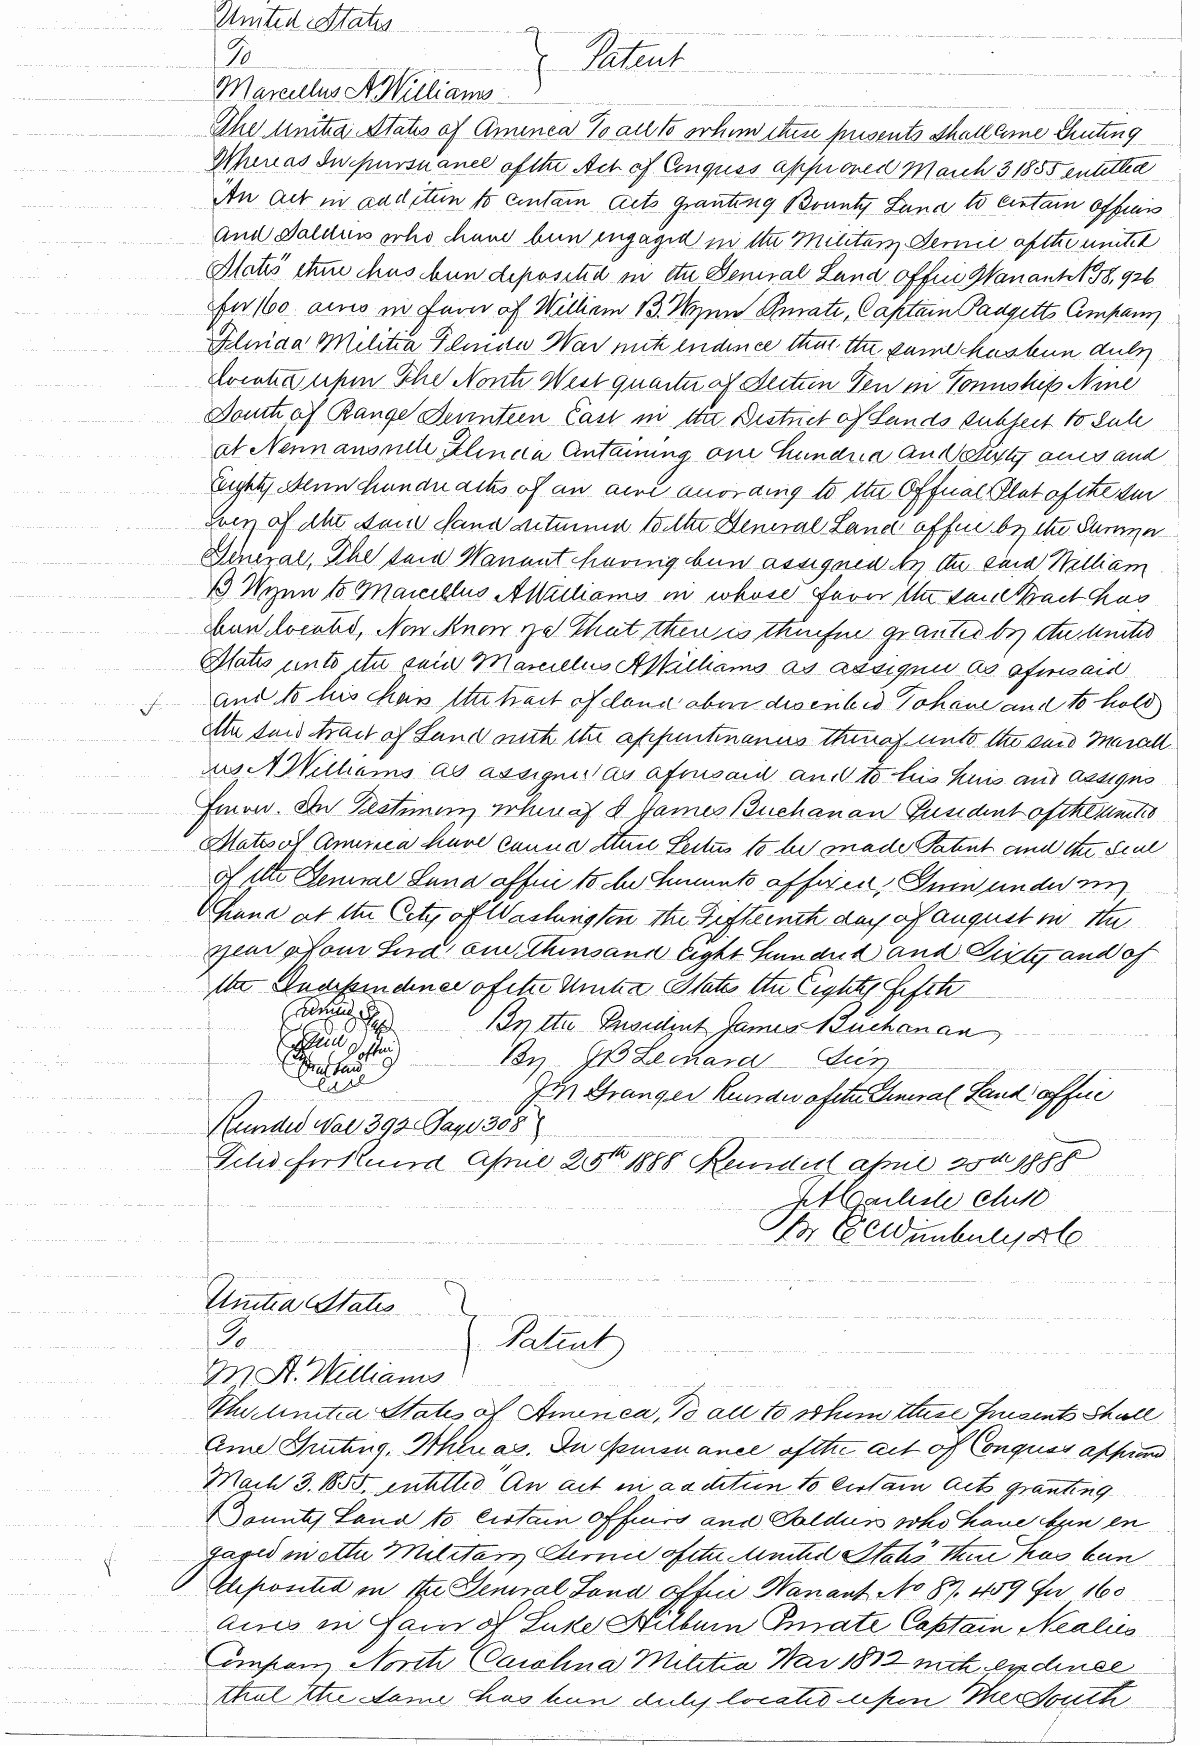 United States
To
Patent
Marcellus A Williams
The United States of America To all to whom these presents shall come Greeting
Whereas In pursuance of the Act of Congress approved March 3 1855 entitled
"An act in addition to certain acts granting Bounty Land to certain officers
and Soldiers who have been engaged in the Military Service of the united
States" there has been deposited in the General Land office Warrant No 58,926
for 160 acres in favor of William B. Wynn Private, Captain Padgetts Company
Florida Militia Florida War with evidence that the same has been duly
located upon The North West quarter of Section Ten in Township Nine
South of Range Seventeen East in the District of Lands subject to Sale
at Newnansville Florida Containing one hundred and Sixty acres and
Eighty seven hundredths of an acre according to the Official Plat of the Sur
vey of the said land returned to the General Land office by the Surveyor
General, The said Warrant having been assigned by the said William
B Wynn to Marcellus A Williams in whose favor the said Tract has
been located, Now Know ye That there is therefore granted by the united
States unto the said Marcellus A Williams as assignee as aforesaid
and to his heirs the tract of land above described To have and to hold
the said tract of Land with the appurtenances thereof unto the said Marcell
us A Williams as assignee as aforesaid and to his heirs and assigns
forever. In Testimony whereof I James Buchanan President of the United
States of America have caused these Letters to be made Patent and the seal
of the General Land office to be hereunto affixed, Given under my
hand at the City of Washington the Fifteenth day of August in the
year of our Lord one thousand Eight hundred and Sixty and of
the Independence of the United States the Eighty fifth
By the President James Buchanan
By J B Leonard Secy
J N Granger Recorder of the General Land office
Recorded Vol 392 Page 308
Filed for Record April 25th 1888 Recorded april 25th 1888
J A Carlisle Clerk
By E C Wimberly D C
United States
To
Patent
M A. Williams
The United States of America, To all to whom these presents Shall
Come Greeting. Whereas. In pursuance of the act of Congress approved
Mach 3. 1855. entitled "An act in addition to certain acts granting
Bounty Land to certain officers and Soldiers who have been en
gaged in the Military Service of the United States" there has been
deposited in the General Land office Warrant No 87.459 for 160
acres in favor of Luke Hilburn Private Captain Nealies
Company North Carolina Militia War 1812 with evidence
that the same has been duly located upon The South